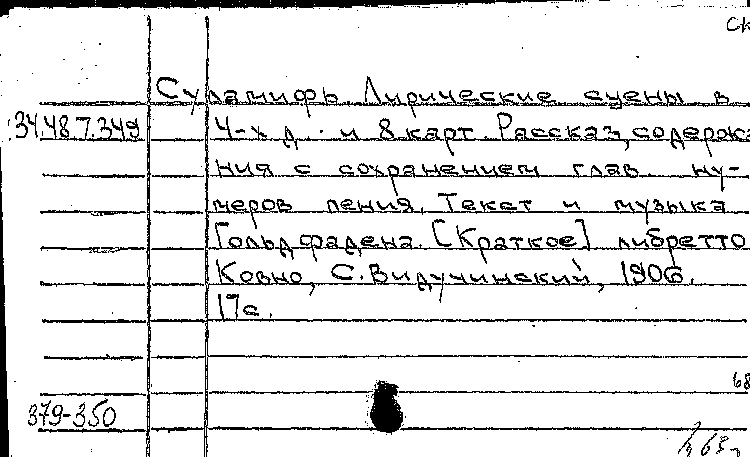 ск
Суламифь. Лирические сцены в
34.48 7.349 4-х д. и 8 карт. Рассказ, содержа
ния с сохранением глав. ну-
меров пения. Текст и музыка
Гольдфадена. [Краткое] либретто
Ковно, С. Видучинский, 1906.
17с.
68
379-350